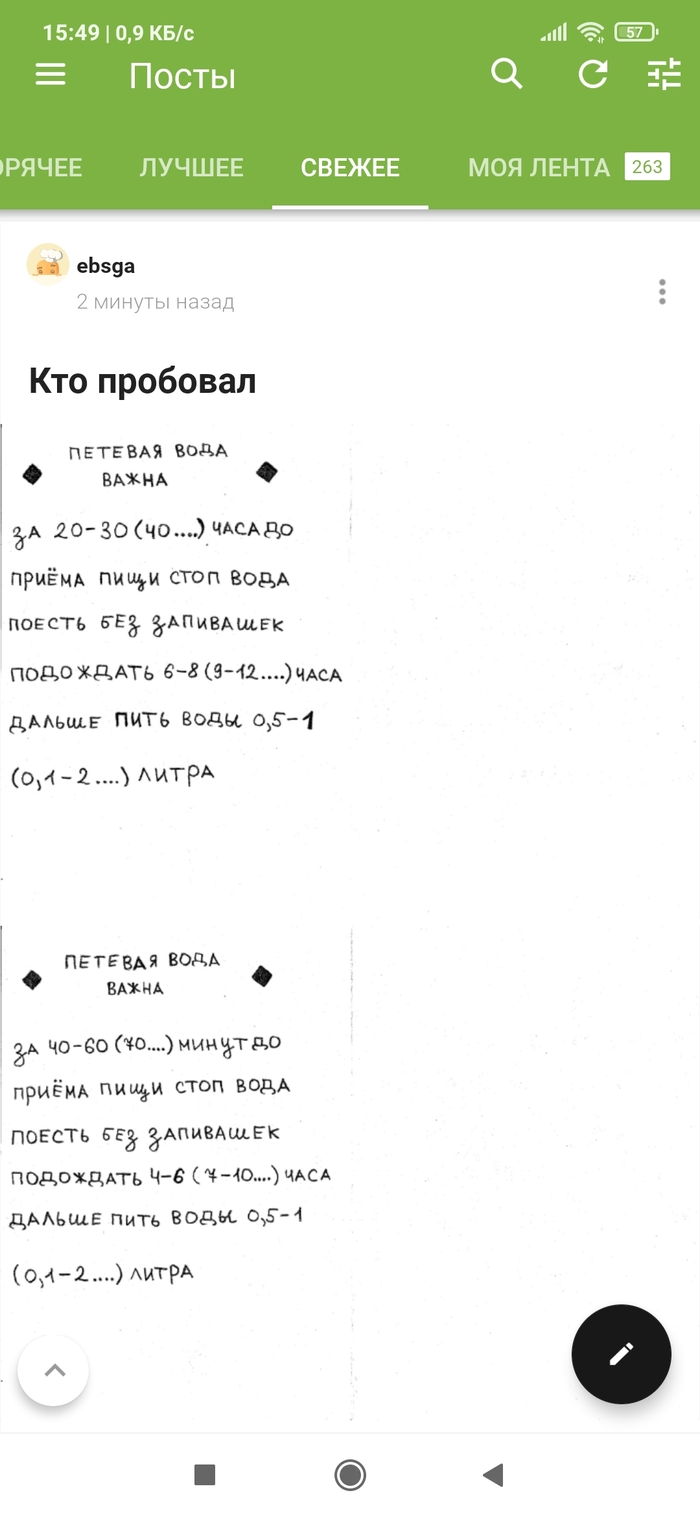 15:49 | 0,9 КБ/с 57
Посты
ОРЯЧЕЕ ЛУЧШЕЕ СВЕЖЕЕ МОЯ ЛЕНТА 263
ebsga
2 минуты назад
Кто пробовал
ПЕТЕВАЯ ВОДА
ВАЖНА
ЗА 20-30 (40....) ЧАСА ДО
ПРИЁМА ПИЩИ СТОП ВОДА
ПОЕСТЬ БЕЗ ЗАПИВАШЕК
ПОДОЖДАТЬ 6-8 (9-12....) ЧАСА
ДАЛЬШЕ ПИТЬ ВОДЫ 0,5-1
(0,1-2....) ЛИТРА
ПЕТЕВАЯ ВОДА
ВАЖНА
ЗА 40-60 (70....) МИНУТ ДО
ПРИЁМА ПИЩИ СТОП ВОДА
ПОЕСТЬ БЕЗ ЗАПИВАШЕК
ПОДОЖДАТЬ 4-6 (7-10....) ЧАСА
ДАЛЬШЕ ПИТЬ ВОДЫ 0,5-1
(0,1-2....) ЛИТРА